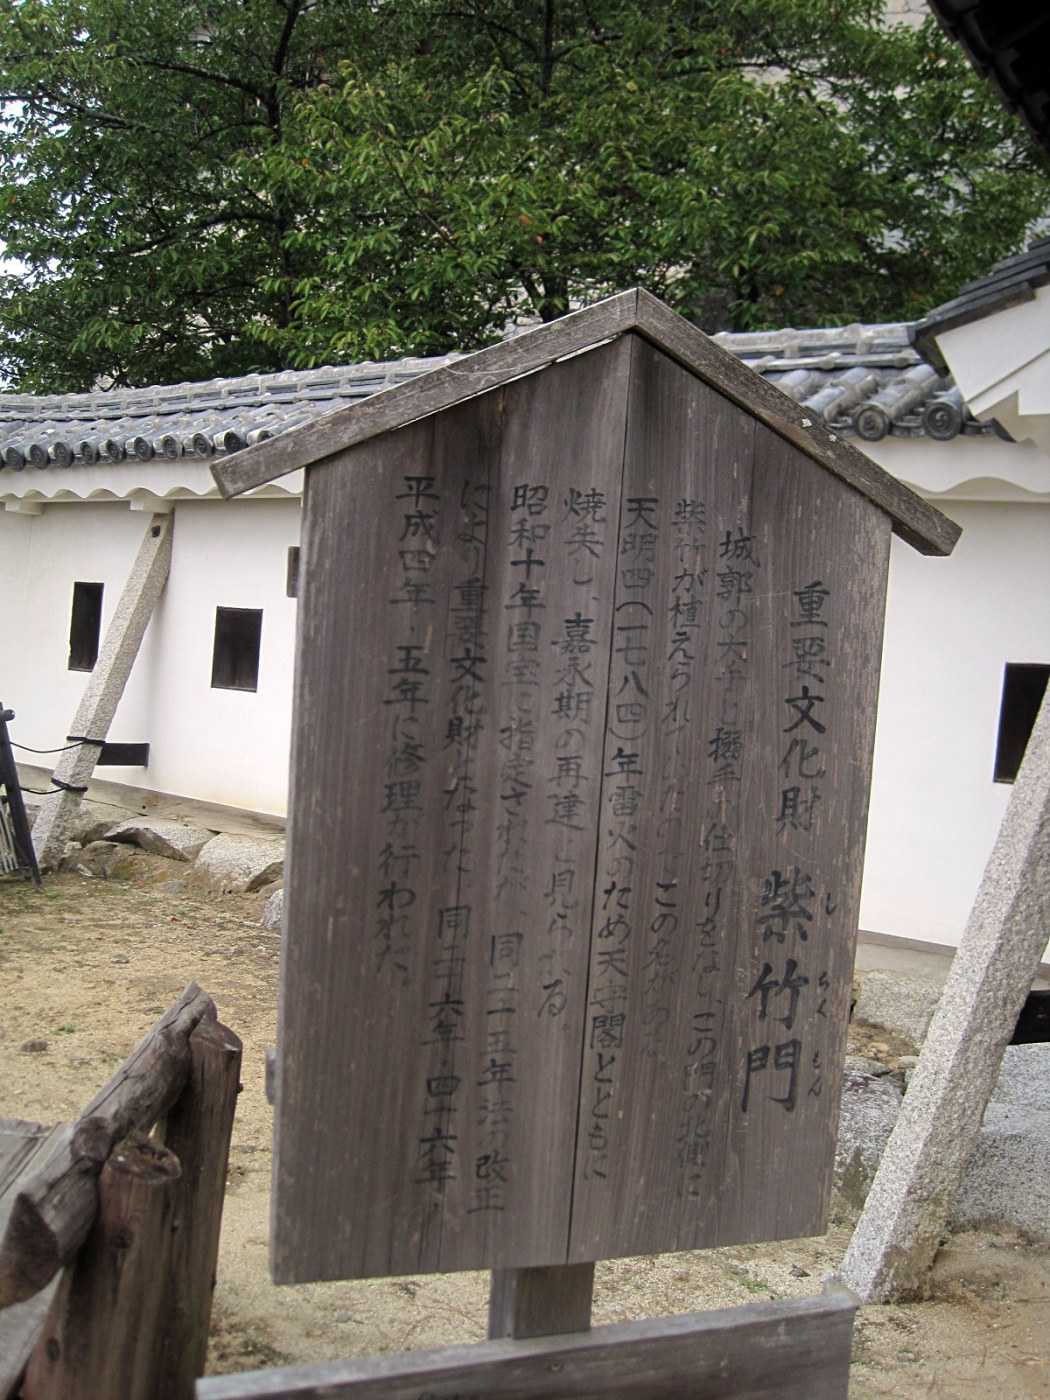 重要文化財 紫竹門
しちくもん
城郭の大手と搦手の仕切りをなし、この門の北側に
紫竹が植えられていた この名がある
天明四(一七八四)年雷火のため天守閣とともに
焼失し、嘉永期の再建と見られる
昭和十年国宝に指定されたが、同二十五年法の改正
により重要文化財となった 同二十六年・四十六年
平成四年・五年に修理が行われた